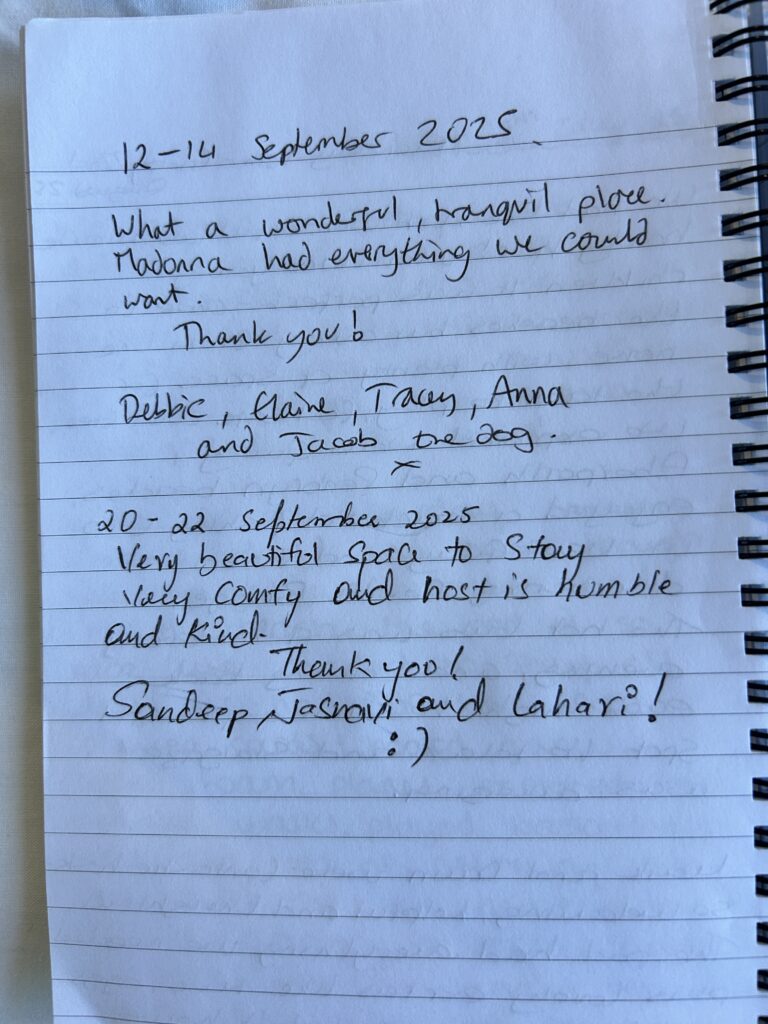 12-14 September 2025.
What a wonderful, tranquil place.
Madonna had everything we could
want.
Thank you!
Debbie, Elaine, Tracey, Anna
and Jacob the dog.
x
20-22 September 2025
Very beautiful space to Stay
Very Comfy and host is humble
and Kind.
Thank you!
Sandeep, Jasnavi and Lahari!
:)